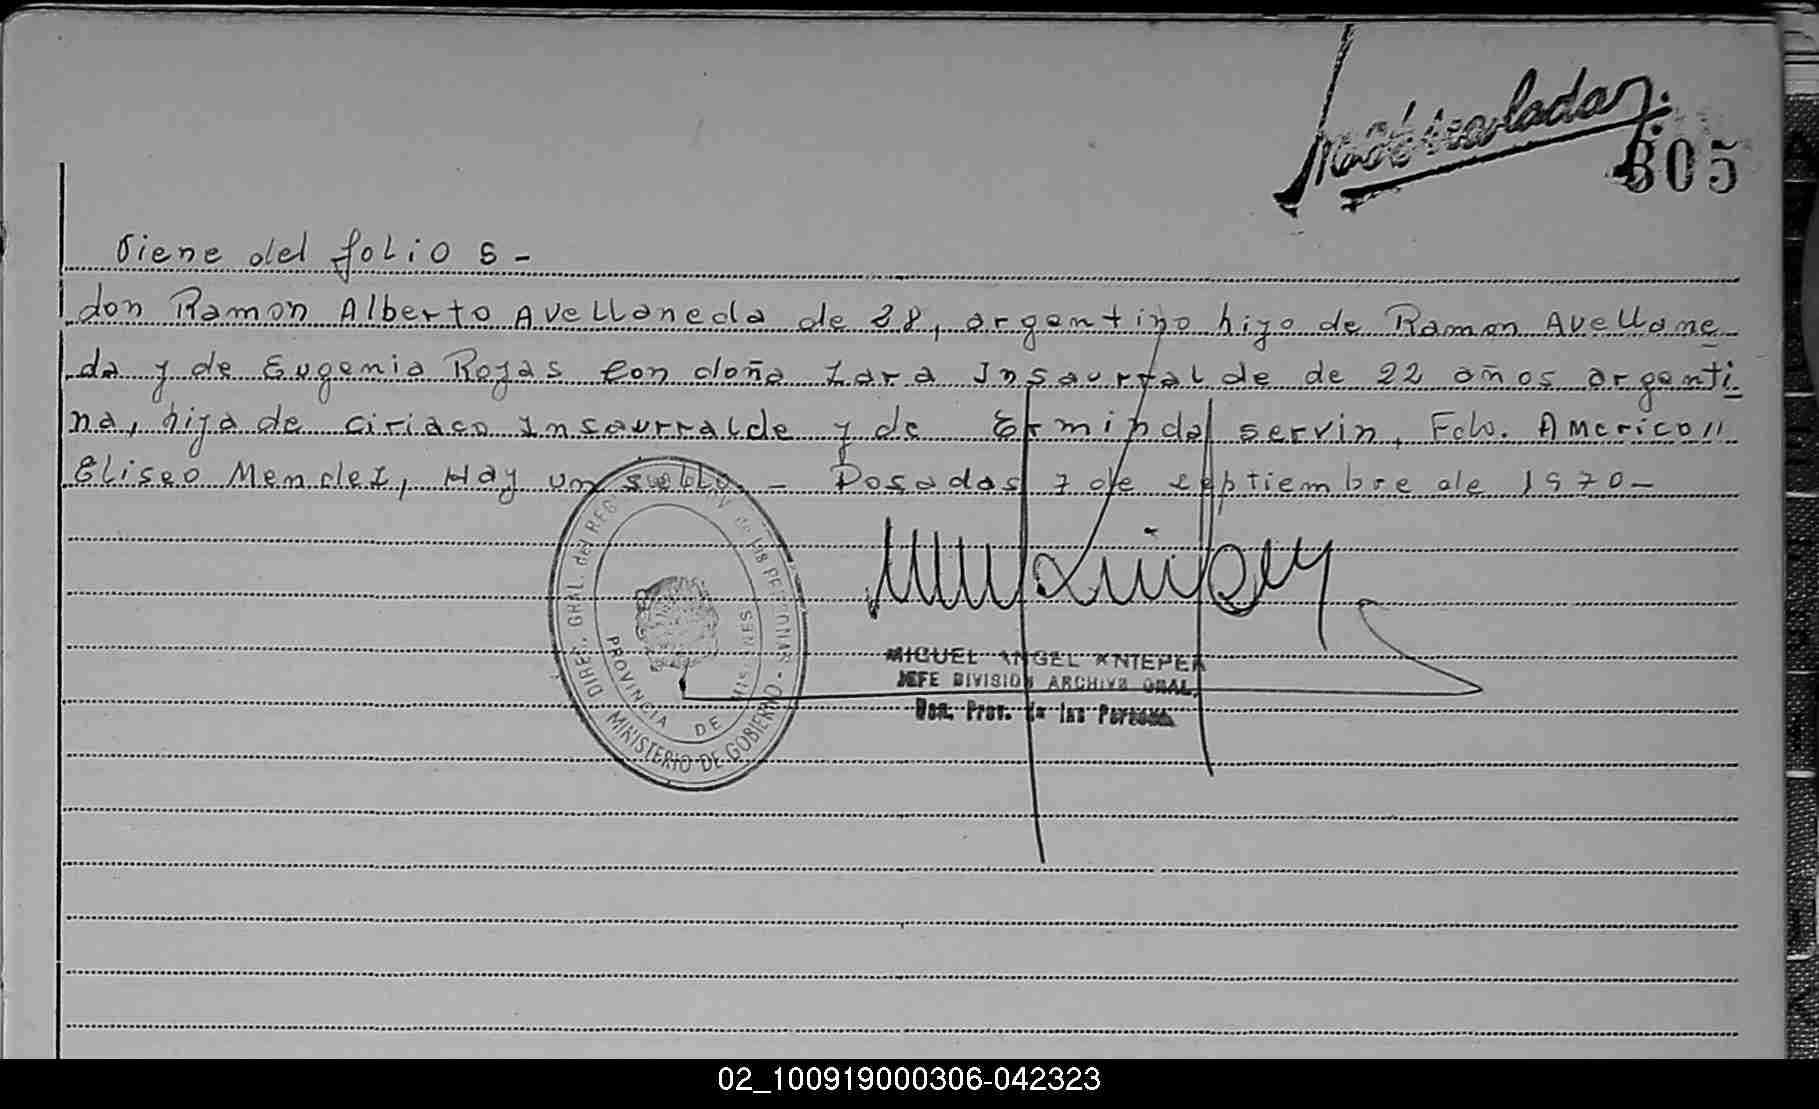 Inmóvilizado
305
Viene del folio 5-
don Ramon Alberto Avellaneda de 28, argentino hijo de Ramon Avellane
da y de Eugenia Rojas con doña Zara Insaurralde de 22 años argenti
na, hija de Ciriaco Insaurralde y de Erminda Servin, Fdo. Americo //
Eliseo Mendez, Hay un sello. - Posadas 7 de septiembre de 1970-
DIREC. GRAL. del REG de las PERSONAS - MINISTERIO DE GOBIERNO
PROVINCIA DE MISIONES
MIGUEL ANGEL
JEFE DIVISION ARCHIVO GRAL.
Prov. de las Personas
02_100919000306-042323